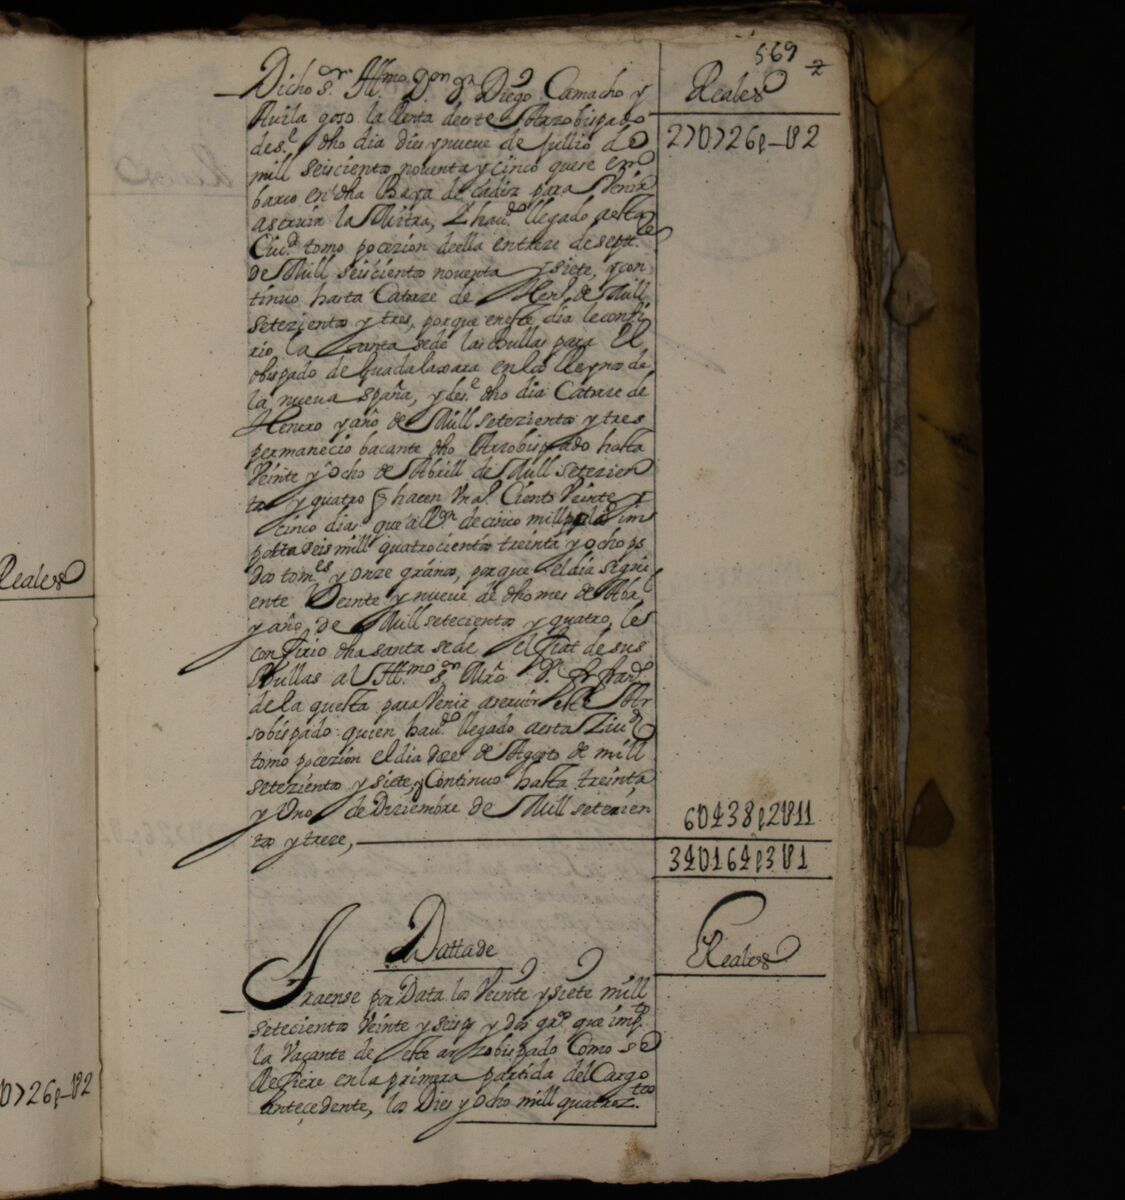 569
2
Reales
Dicho s.or Ill.mo D.on D.n Diego Camacho y
Avila goso la Renta deeste Arzobispado
des.e dho dia dies y nueve de Jullio de
27U726p_U82
mill seiscientos noventa y cinco que se em
barco en dha Baya de Cadiz para Venir
aservir la Mitra, Y hav.do llegado aesta
Ciu.d tomo pocezion deella entreze de sept.re
de Mill seiscientos noventa y siete, y con
tinuo hasta Catorze de Hen.o de Mill
setezientos y tres, porque eneste dia leconfi
rio la Santa sede las Bullas para El
obispado de Guadalaxara en los Reynos de
la nueva españa, y des.e dho dia Catorze de
Henero y año de Mill setezientos y tres
permanecio bacante dho Arzobispado hasta
Veinte y Ocho de Abrill de Mill setezien
tos y quatro q hacen Un a.o Ciento Veinte y
cinco dias que a R.on de cinco mill p.s la im
porta seis mill quatrocientos treinta y ocho p.s
dos tom.es y Onze granos, porque el dia segui
ente Veinte y nueve de dho mes de Abr.l
y año de Mill setecientos y quatro, les
confirio dha santa sede el fiat de sus
Bullas al Ill.mo s.or Mro D. Fr Fran.co
de la questa para Venir aservir este Ar
sobispado quien hav.do llegado aesta Ziud.d
tomo pocezion el dia doze de Agosto de mill
setezientos y siete, y Continuo hasta treinta
y Uno de Diziembre de Mill setezien
tos y treze,
6U438p2U11
34U164p3U1
Dattade
Reales
Traense por Data los Veinte y siete mill
setecientos Veinte y seis p y dos gr.s que imp.ta
la Vacante de este arzobispado Como se
Refiere en la primera partida del Cargo
antecedente, los Dies y Ocho mill quatroz.tos
Reales
U726p_U82